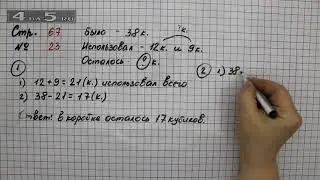 4 НА 5 . RU
Стр. 67 Было - 38 к.
№ 23 Использовал - 12к. и 9к.
?к.
Осталось - ? к.
①
1) 12 + 9 = 21 (к.) использовал всего
2) 38 - 21 = 17 (к.)
Ответ: в коробке осталось 17 кубиков.
② 1) 38 -